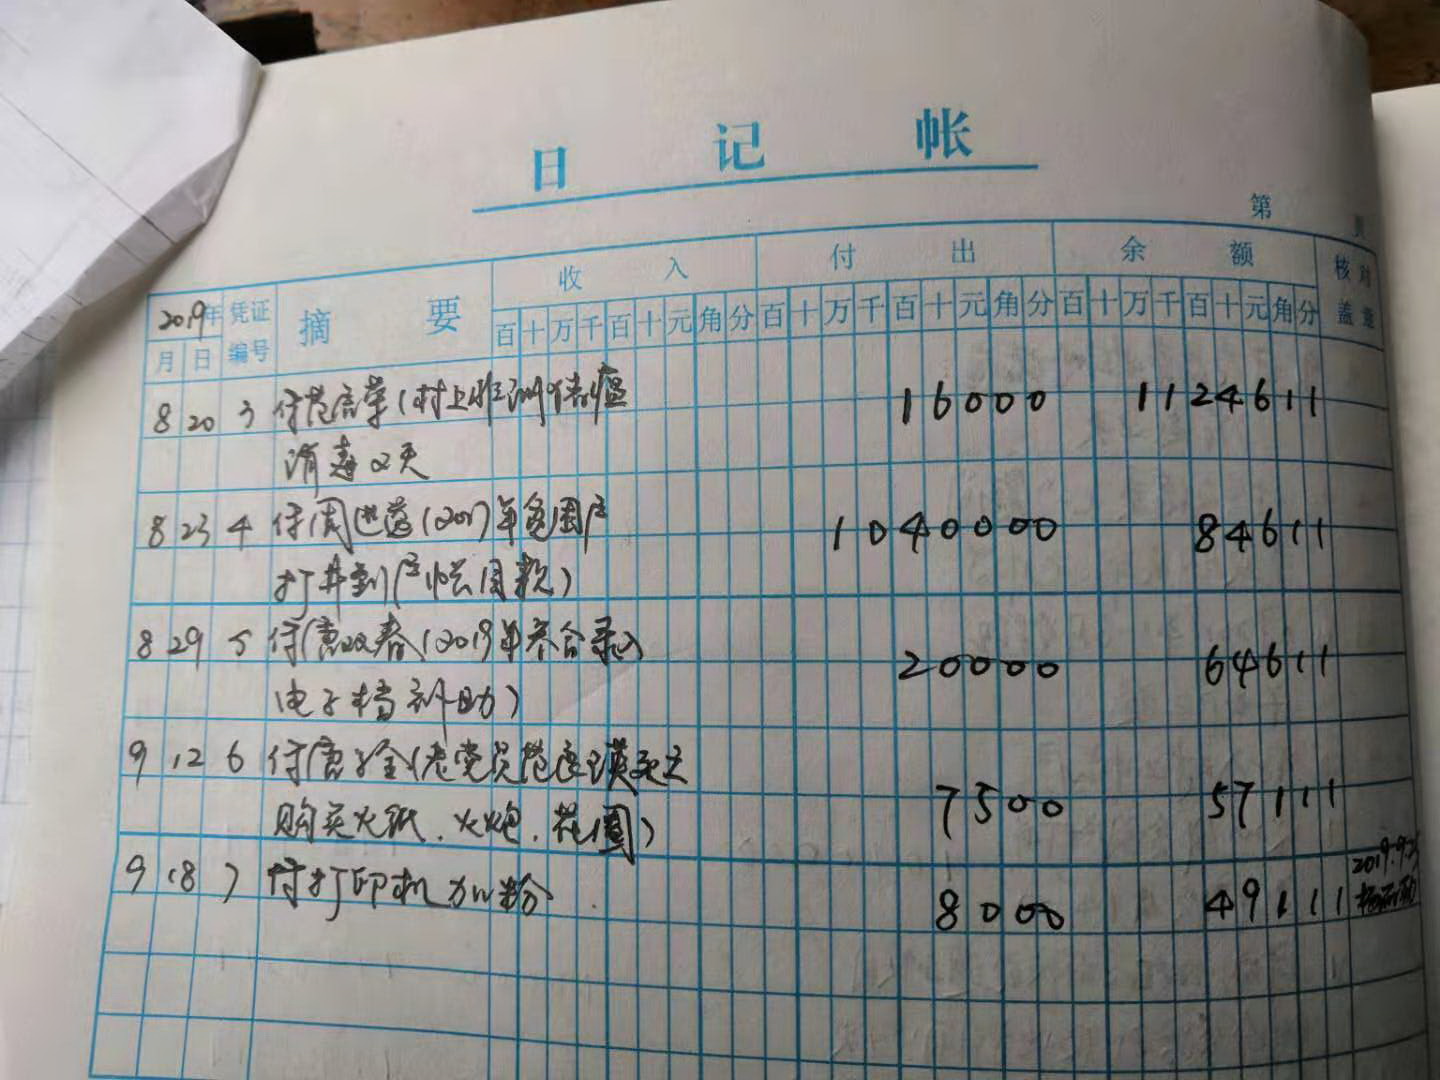 日 记 帐
第 页
2019年 凭证 摘 要 收 入 付 出 余 额 核对
月 日 编号 百 十 万 千 百 十 元 角 分 百 十 万 千 百 十 元 角 分 百 十 万 千 百 十 元 角 分 盖章
8 20 3 付范 荣(村上 猪瘟 16000 1124611
消毒2天
8 23 4 付周进 (2017年贫困户 1040000 84611
打井到户 款)
8 29 5 付唐双春(2019年参合录入 20000 64611
电子档补助)
9 12 6 付唐 金(老党员范 瑛死亡 7500 57111
购买火纸.火炮.花圈)
9 18 7 付打印机加粉 8000 49111 2019.9.25